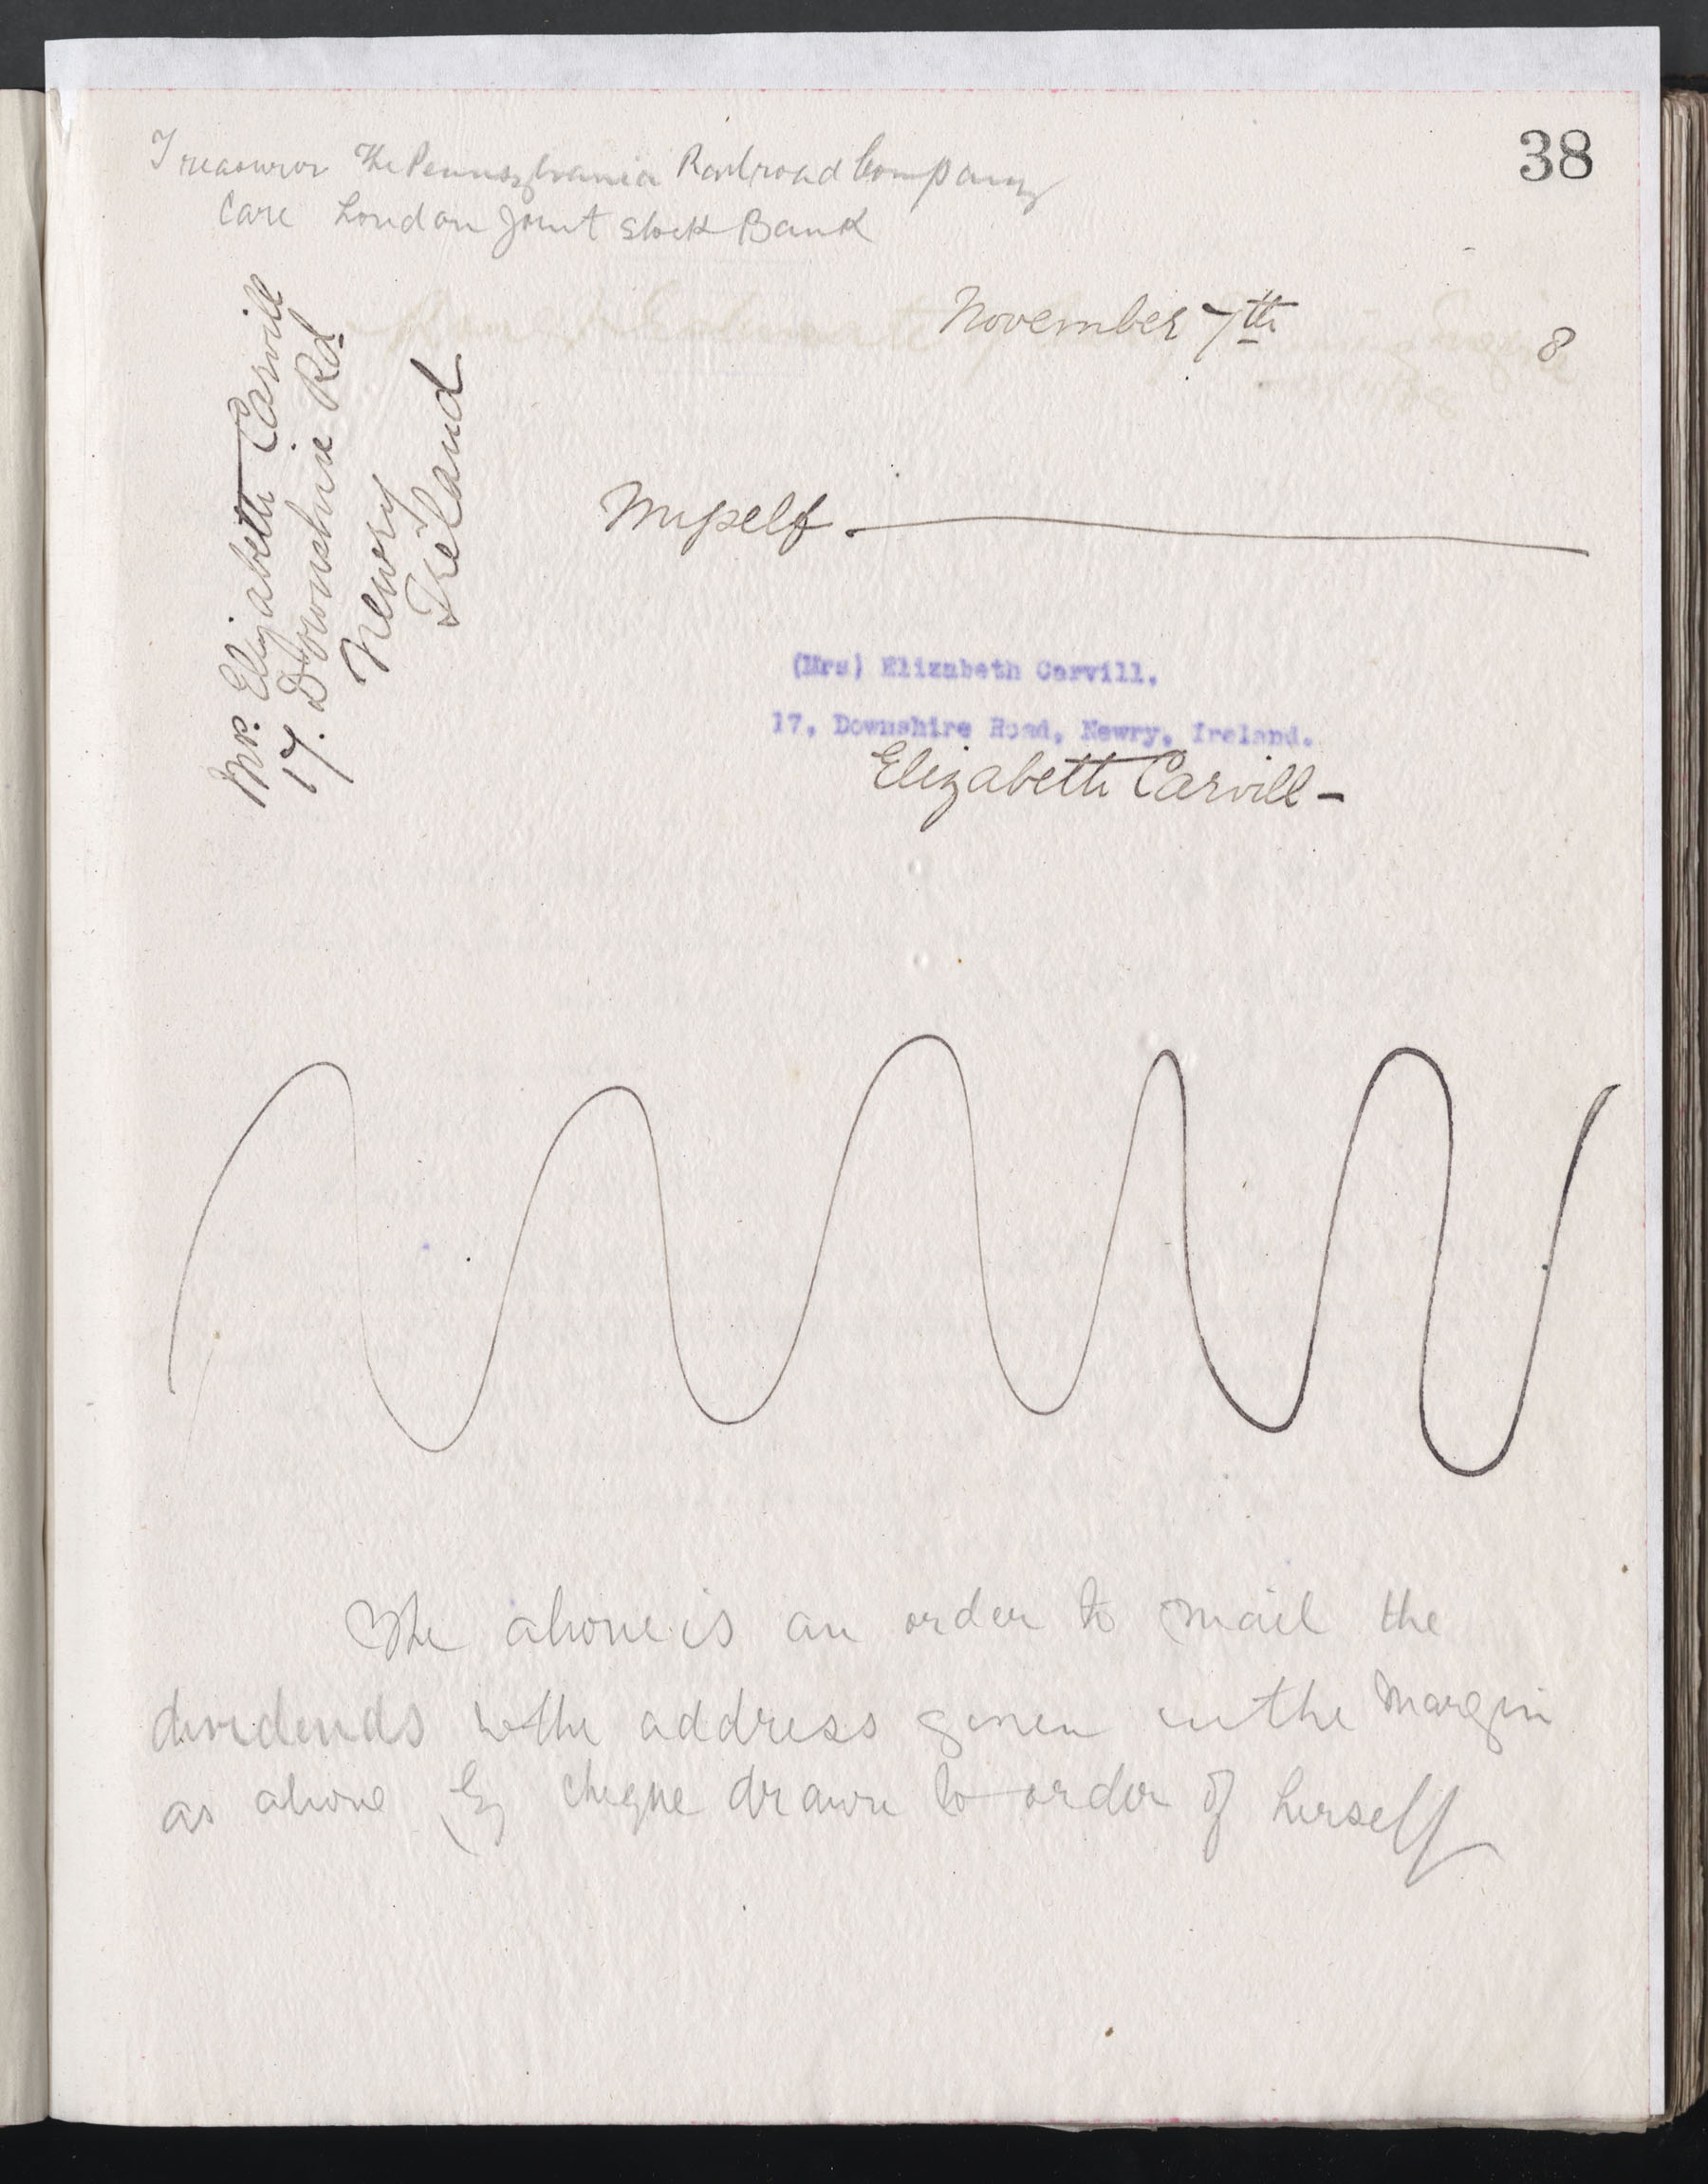 38
Treasurer The Pennsylvania Railroad Company
Care London Joint Stock Bank
November 7th 8
Mrs. Elizabeth Carvill
17. Downshire Rd
Newry
Ireland
Myself.
(Mrs) Elizabeth Carvill,
17, Downshire Road, Newry, Ireland.
Elizabeth Carvill -
The above is an order to mail the
dividends to the address given in the margin
as above By cheque drawn to order of herself